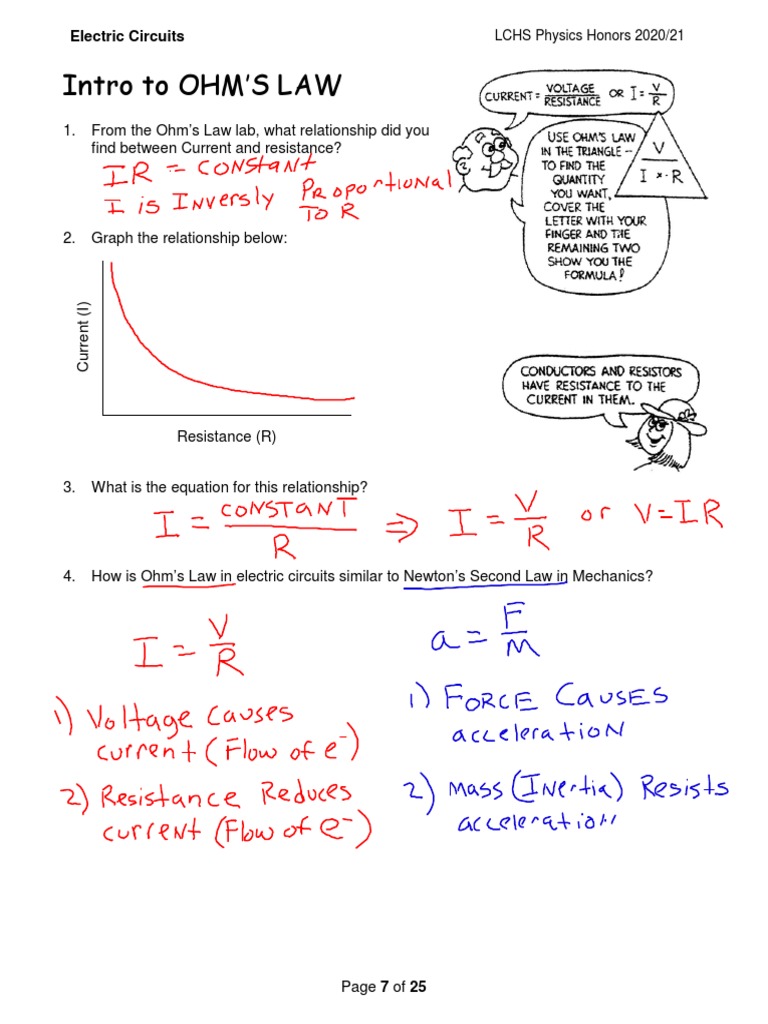 Electric Circuits
LCHS Physics Honors 2020/21
Intro to OHM'S LAW
CURRENT = VOLTAGE / RESISTANCE OR I = V / R
1. From the Ohm's Law lab, what relationship did you
find between Current and resistance?
IR = CONSTANT
I is INVERSLY PROPORTIONAL
TO R
USE OHM'S LAW
IN THE TRIANGLE --
TO FIND THE
QUANTITY
YOU WANT,
COVER THE
LETTER WITH YOUR
FINGER AND THE
REMAINING TWO
SHOW YOU THE
FORMULA!
V
I × R
2. Graph the relationship below:
Current (I)
Resistance (R)
CONDUCTORS AND RESISTORS
HAVE RESISTANCE TO THE
CURRENT IN THEM.
3. What is the equation for this relationship?
I = CONSTANT / R ⇒ I = V / R or V=IR
4. How is Ohm's Law in electric circuits similar to Newton's Second Law in Mechanics?
I = V / R
1) Voltage causes
current (Flow of e⁻)
2) Resistance Reduces
current (Flow of e⁻)
a = F / M
1) FORCE CAUSES
acceleration
2) MASS (INertia) Resists
acceleration
Page 7 of 25